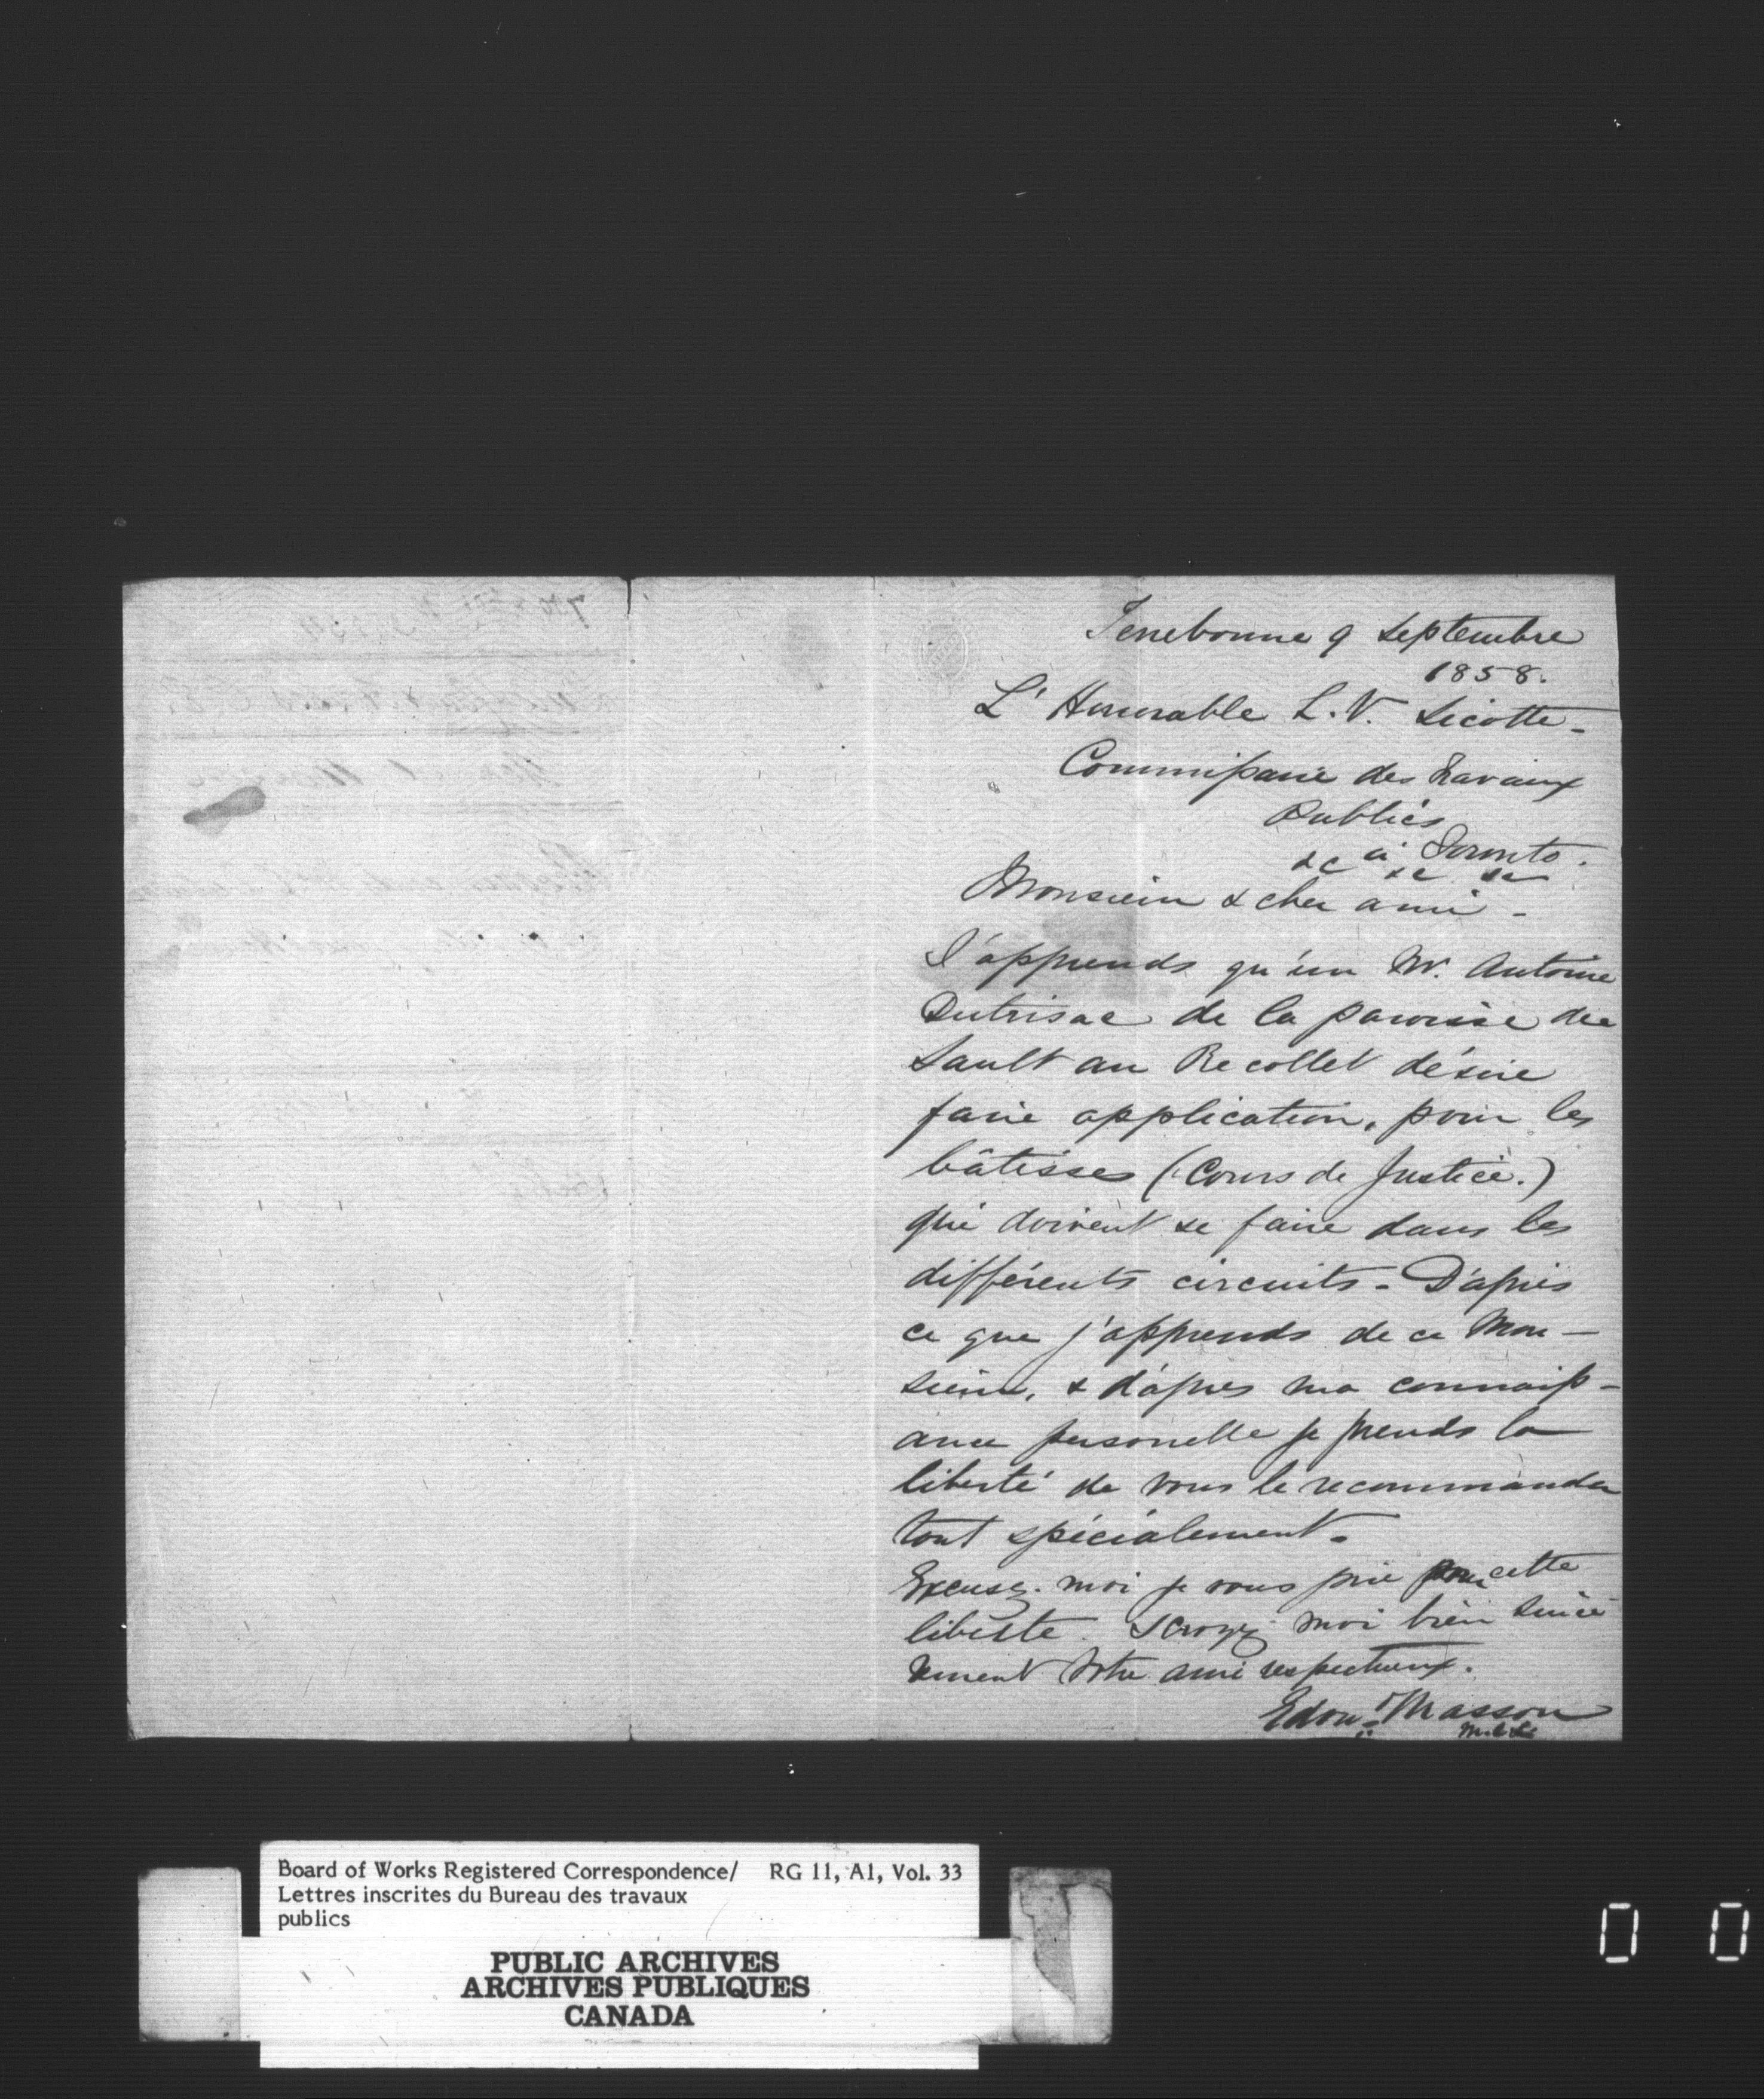 Terrebonne 9 Septembre
1858.
L'Honorable L.V. Sicotte -
Commissaire des Travaux
Publics
à Toronto.
&c &c &c
Monsieur & cher ami -
J'apprends qu'un Mr. Antoine
Dutrisac de la paroisse du
Sault au Recollet désire
faire application, pour les
bâtisses (Cours de Justice.)
qui doivent se faire dans les
différents circuits - D'après
ce que j'apprends de ce Mon-
sieur, & d'après ma connaiss-
ance personelle je prends la
liberté de vous le recommander
tout spécialement.
Excusez-moi je vous prie pour cette
liberté. & croyez moi bien sincè
rement Votre ami respectueux.
Edou^d Masson
M.C.L.
Board of Works Registered Correspondence/ RG 11, A1, Vol. 33
Lettres inscrites du Bureau des travaux
publics
PUBLIC ARCHIVES
ARCHIVES PUBLIQUES
CANADA
0 0